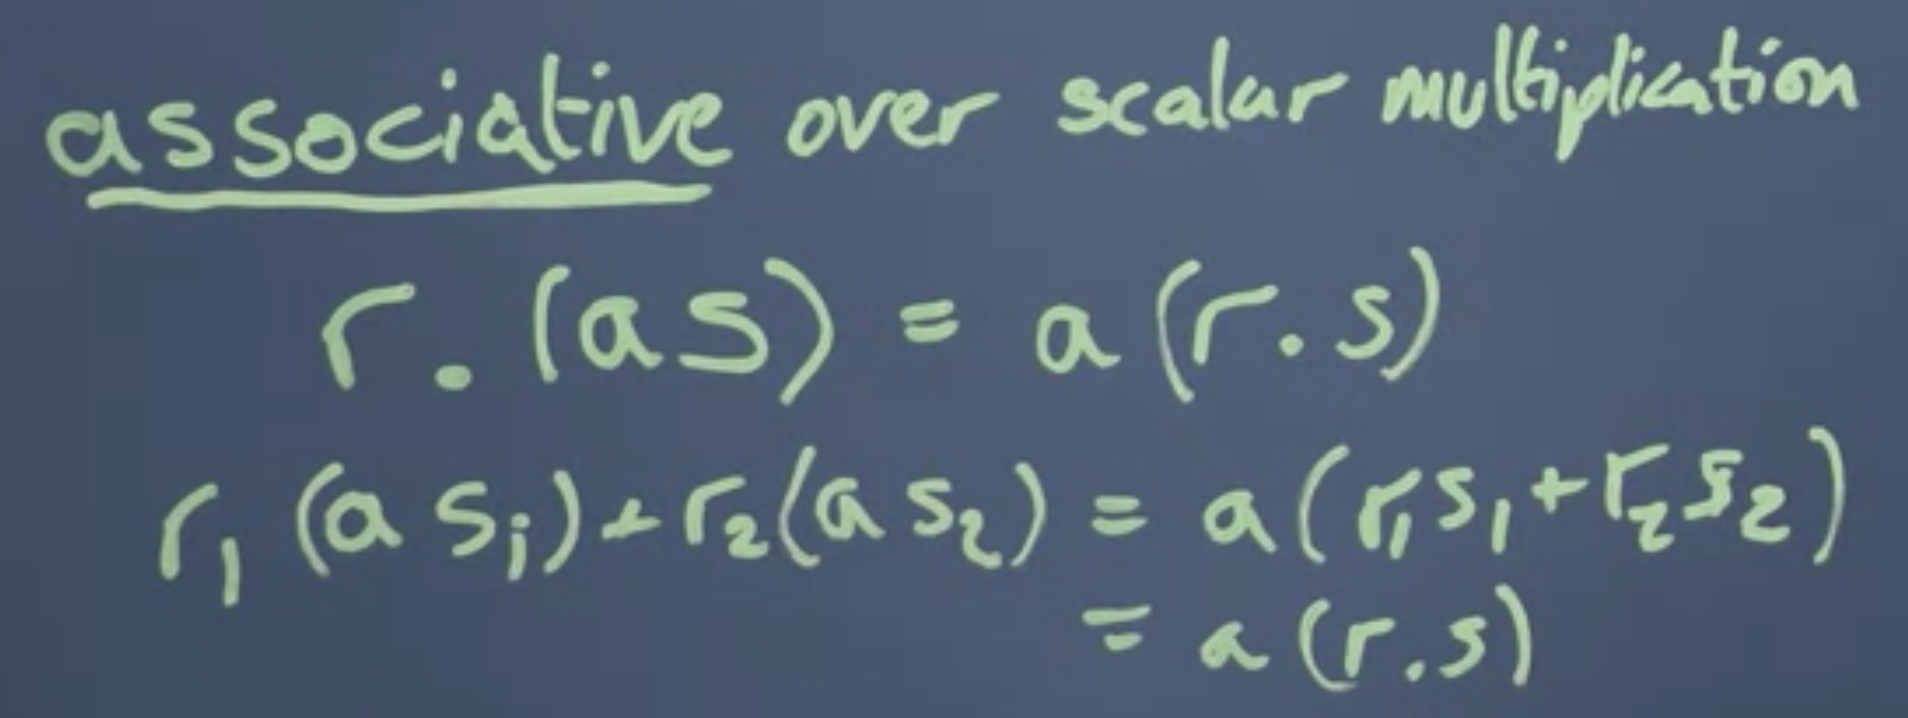 associative over scalar multiplication
r . (a s) = a (r . s)
r₁ (a sᵢ) + r₂ (a s₂) = a (r₁ s₁ + r₂ s₂)
= a (r . s)